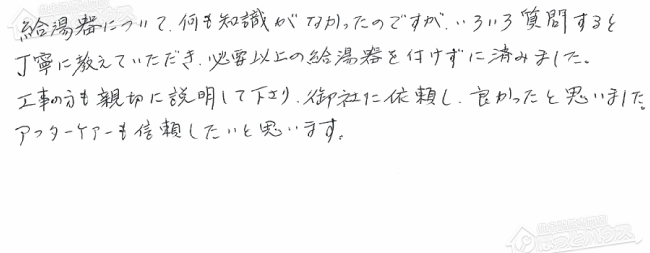 給湯器について、何も知識がなかったのですが、いろいろ質問すると
丁寧に教えていただき、必要以上の給湯器を付けずに済みました。
工事の方も親切に説明して下さり、御社に依頼し、良かったと思いました。
アフターケアーも信頼したいと思います。